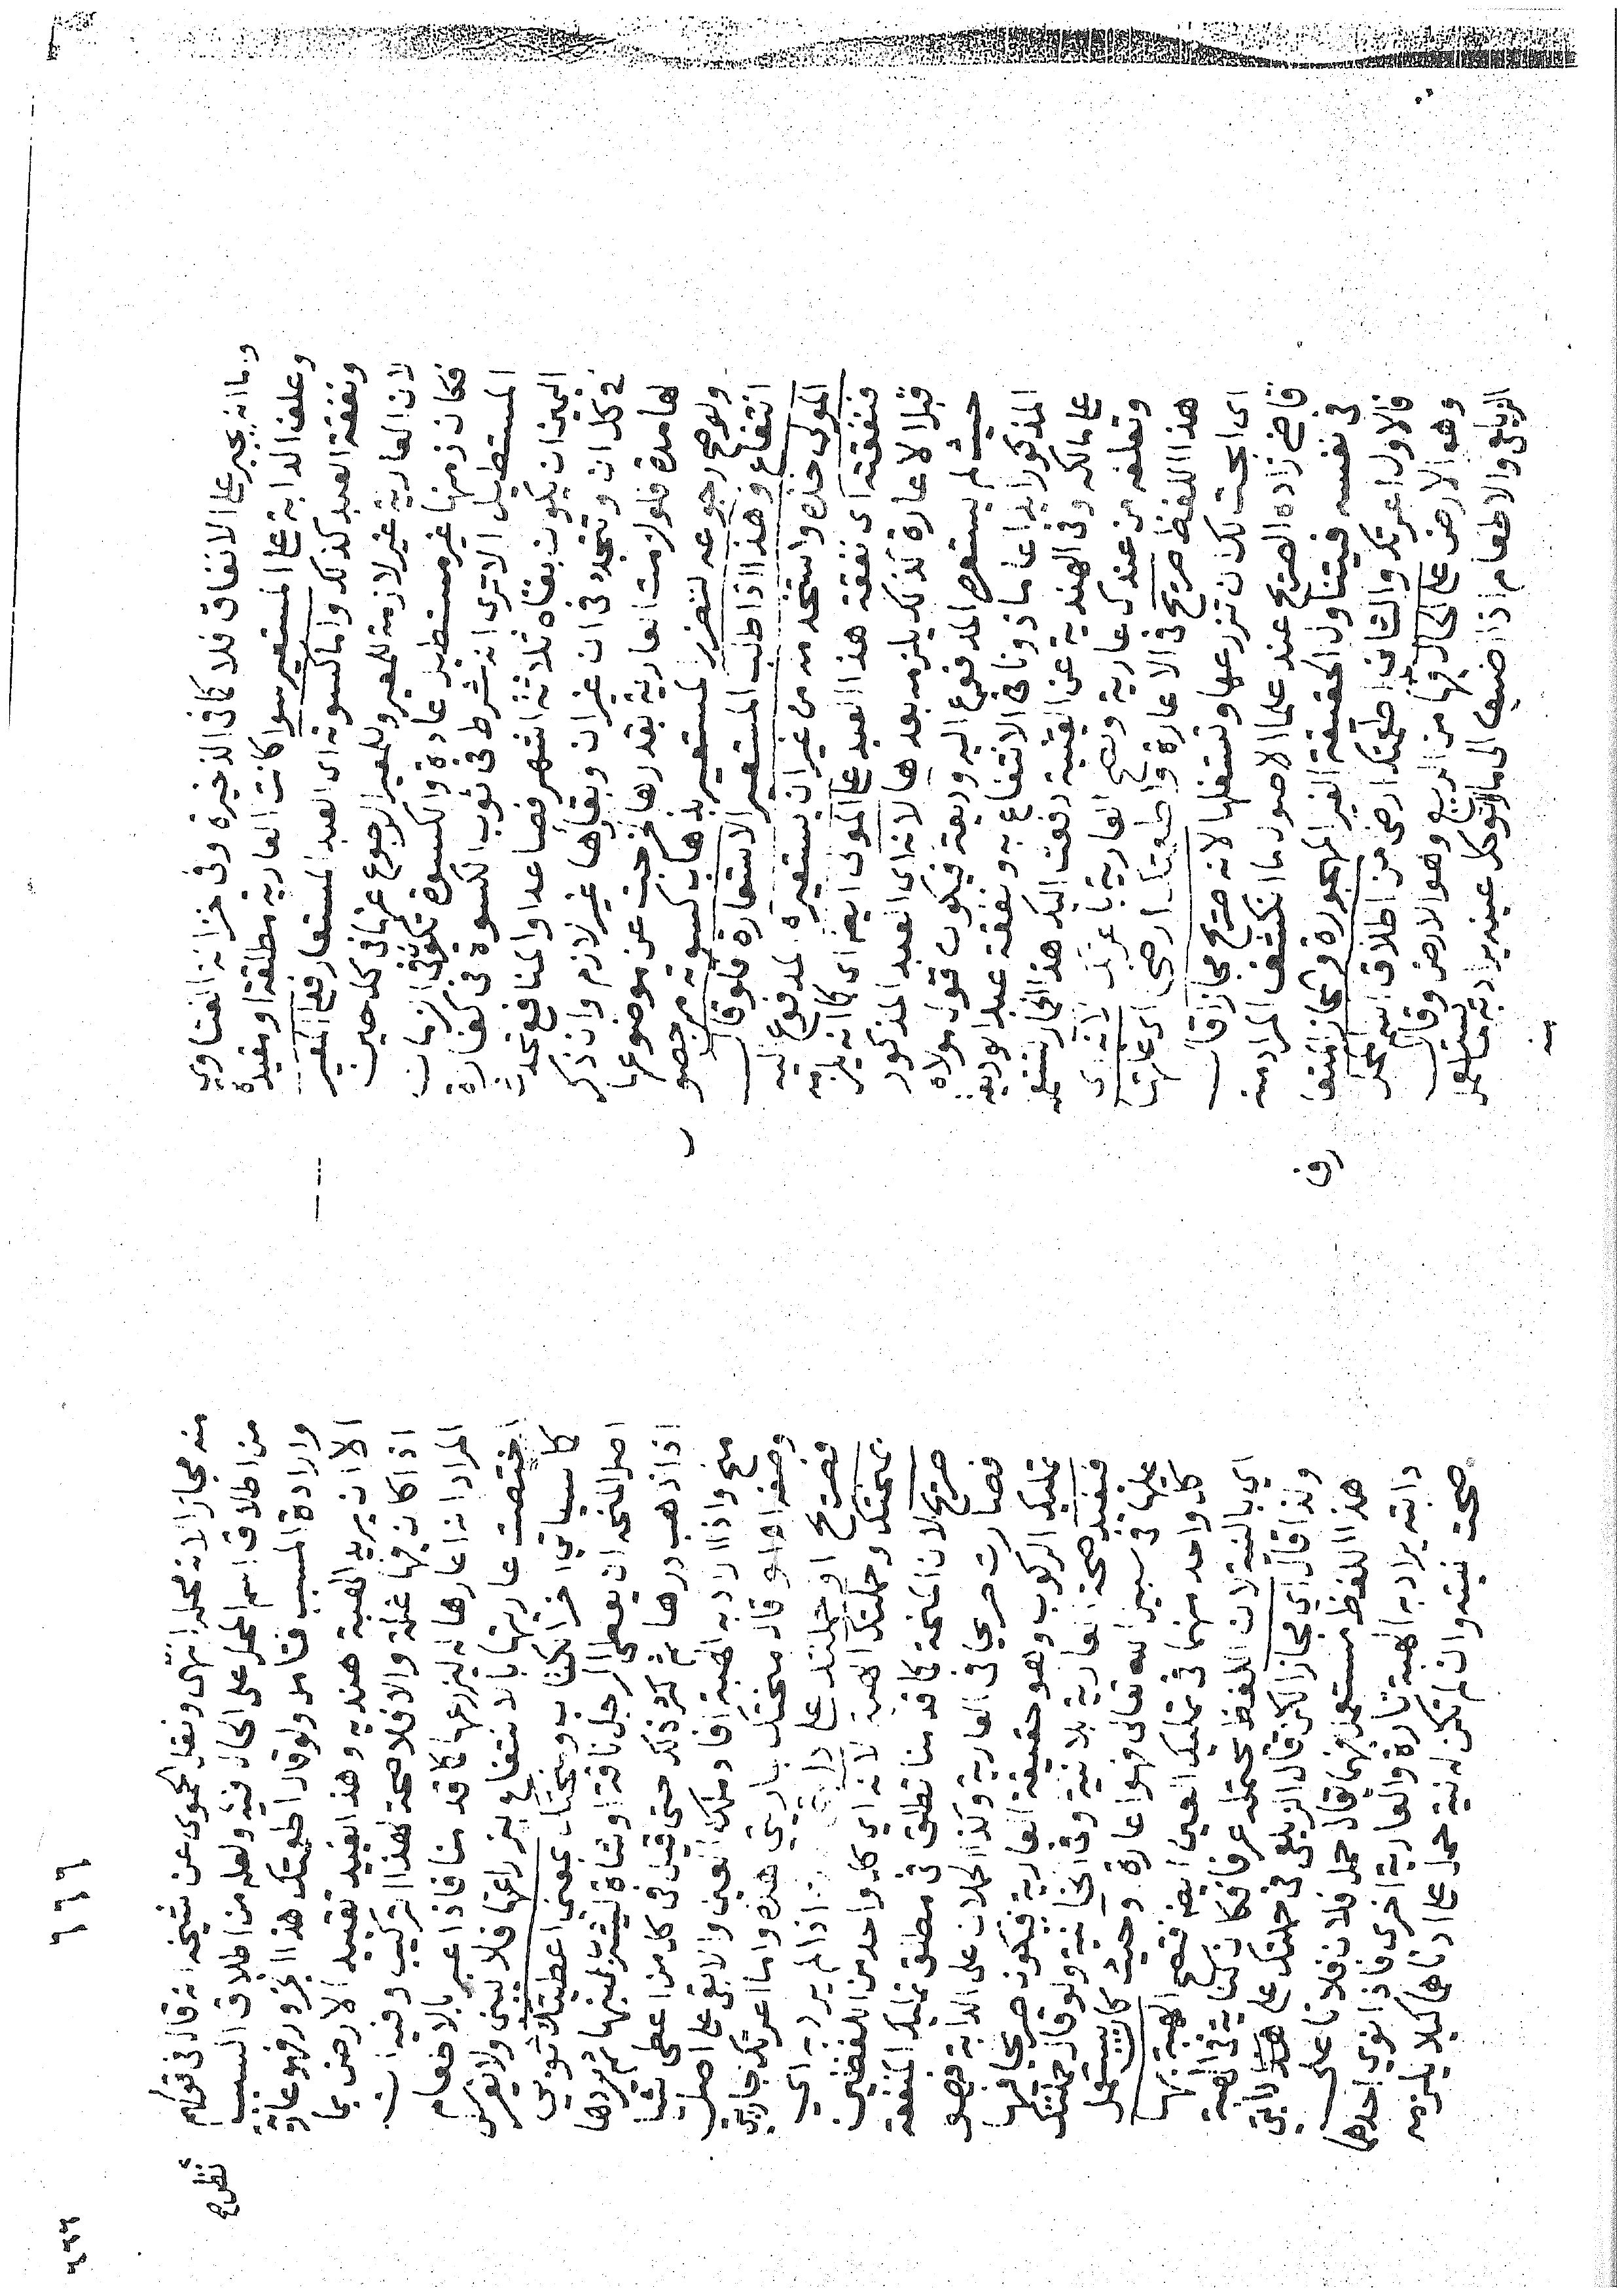 وما انه يجبر على الانفاق فلا كما في الذخيرة وفي خزانة الفتاوي
وعلف الدابة على المستعير سوا كانت العارية مطلقة او مقيدة
ونفقة العبد كذلك واما كسوته اى العبد المستعار فعلى المعير
لان العارية غير لازمة للمعير وللمعير الرجوع عنها في كل حين
فكان زمنها غير مستطيل عادة والكسوة تكون في الزمان
المستطيل الا ترى انه شرط في ثوب الكسوة في كفارة
اليمين ان يكون بقاه ثلاثة اشهر فصاعدا والمنافع تحدث
في كل ان وتتجدد في ان غير ان وبقاؤها غير لازم وان ذكر
لها مدة فلو لزمت العارية بقدرها لخرجت عن موضوعها
ولو صح رجوعه لتضرر المستعير بذهاب كسوته من حصول
انتفاع وهذا اذا طلب المستعير الاستعارة فلو قال
المولى خذه واستخدمه من غير ان يستعيره المدفوع اليه
فنفقته اى نفقة هذا العبد على المولى ايضا اى كما انه يلزمه
قبلا لاعارة كذلك يلزمه بعدها لانه اى العبد المذكور
حيث لم يستعره المدفوع اليه وديعة فيكون قول مولاه
المذكور ايداعا ماذونا في الانتفاع به ونفقة عبد الوديعة
على مالكه وفي الهندية عن القنية دفعت اليك هذا الحمار لتستعمله
وتعلفه من عندك عارية وتصح العارية باعرتك لانه اى
هذا اللفظ صريح في الاعارة واطعمتك ارضى اى غلتها
اى ابحت لك ان تزرعها وتستغلها لانه صريح مجازا قال
قاضي زاده الصريح عند علما الاصول ما انكشف المراد منه
في نفسه فيتناول الحقيقة الغير المهجورة والمجاز المتعارف
فالاول اعرتك والثاني اطعمتك ارضى من اطلاق اسم المحل
وهو الارض على الحال فيها من الريع وهو الارض وقال
الزيلعي والاطعام اذا اضيف الى ما لا يوكل عينه يراد به ما يستعمل
منه
منه مجازا لانه محلها انتهى ونقل الحموى عن شيخه انه قال في قولهم
من اطلاق اسم المحل على الحال فيه ولعله من اطلاق السبب
وارادة المسبب فتامل ولو قال اطعمتك هذا الجزور فهو عارية
الا ان يريد الهبة هنديه وهذا يفيد تقييد الارض بما
اذا كان فيها غلة والا فلا صحة لهذا التركيب وفيه ان
المراد انه اعارها له ليزرعها كما قدمنا فاذا عبر بالاطعام
اختصت عاريتها بالانتفاع بزراعتها فلا يبني ولا يغرس
كما سياتي اخر الكتاب ومنحتك بمعنى اعطيتك ثوبي
اصل المنحة ان يعطى الرجل ناقة او شاة ليشرب لبنها ثم يردها
اذا ذهب درها ثم كثر ذلك حتى قيل في كل من اعطى شيا
منح واذا اراد به الهبة افاد ملك العين والا بقي على اصل
وضعه او لو قال منحتك جاريتي هذه واما اعرتك جاريتي
فصريح او حملتك على دابتي اذا لم يرد به اي
بمنحتك وحملتك الهبة لانه اي كل واحد من اللفظين
صريح لان المنحة كما قدمنا تطلق في مطلق تمليك المنفعة
فصارت صريحا في العارية وكذا الحملان على الدابة فهو
تمليك الركوب وهو حقيقة العارية فيكون صريحا فيها
فتفيد صحة العارية بلا نية وفي الخانية ولو قال حملتك
عليها في سبيل الله تعالى فهو اعارة وحيث كان يستعمل
كل واحد منهما في تمليك العين ايضا فتصح الهبة بها
اي بالنية لان اللفظ محتمله عرفا فكان كناية في الهبة
ولذا قال اي مجازا لكن قال الزيلعي في حملتك على هذه دابتي
هذا اللفظ مستعمل فيهما يقال حمل فلان فلانا على
دابته يراد به الهبة تارة والعارية اخرى فاذا نوى احدهما
صحت نيته وان لم تكن له نية حمل على ادناهما كيلا يلزمه